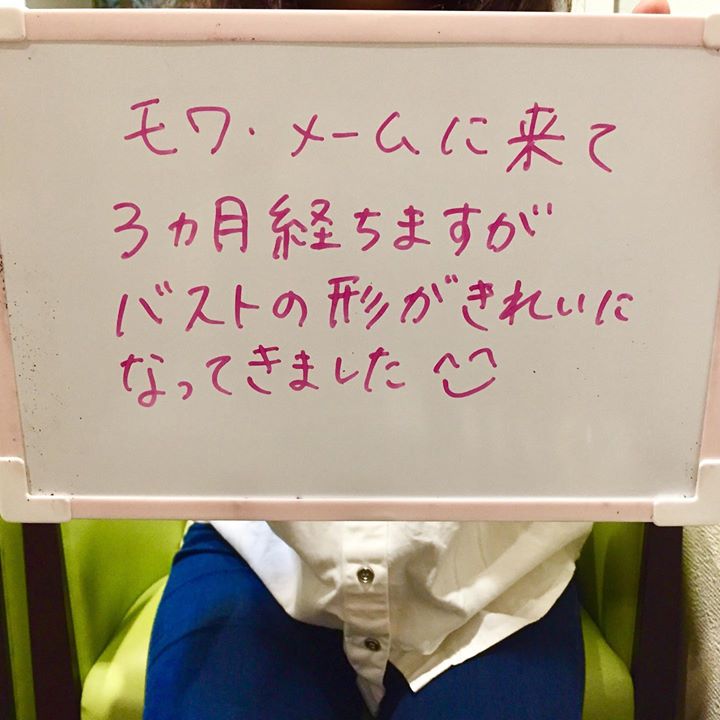 モワ・メームに来て
3ヵ月経ちますが
バストの形がきれいに
なってきました ^^